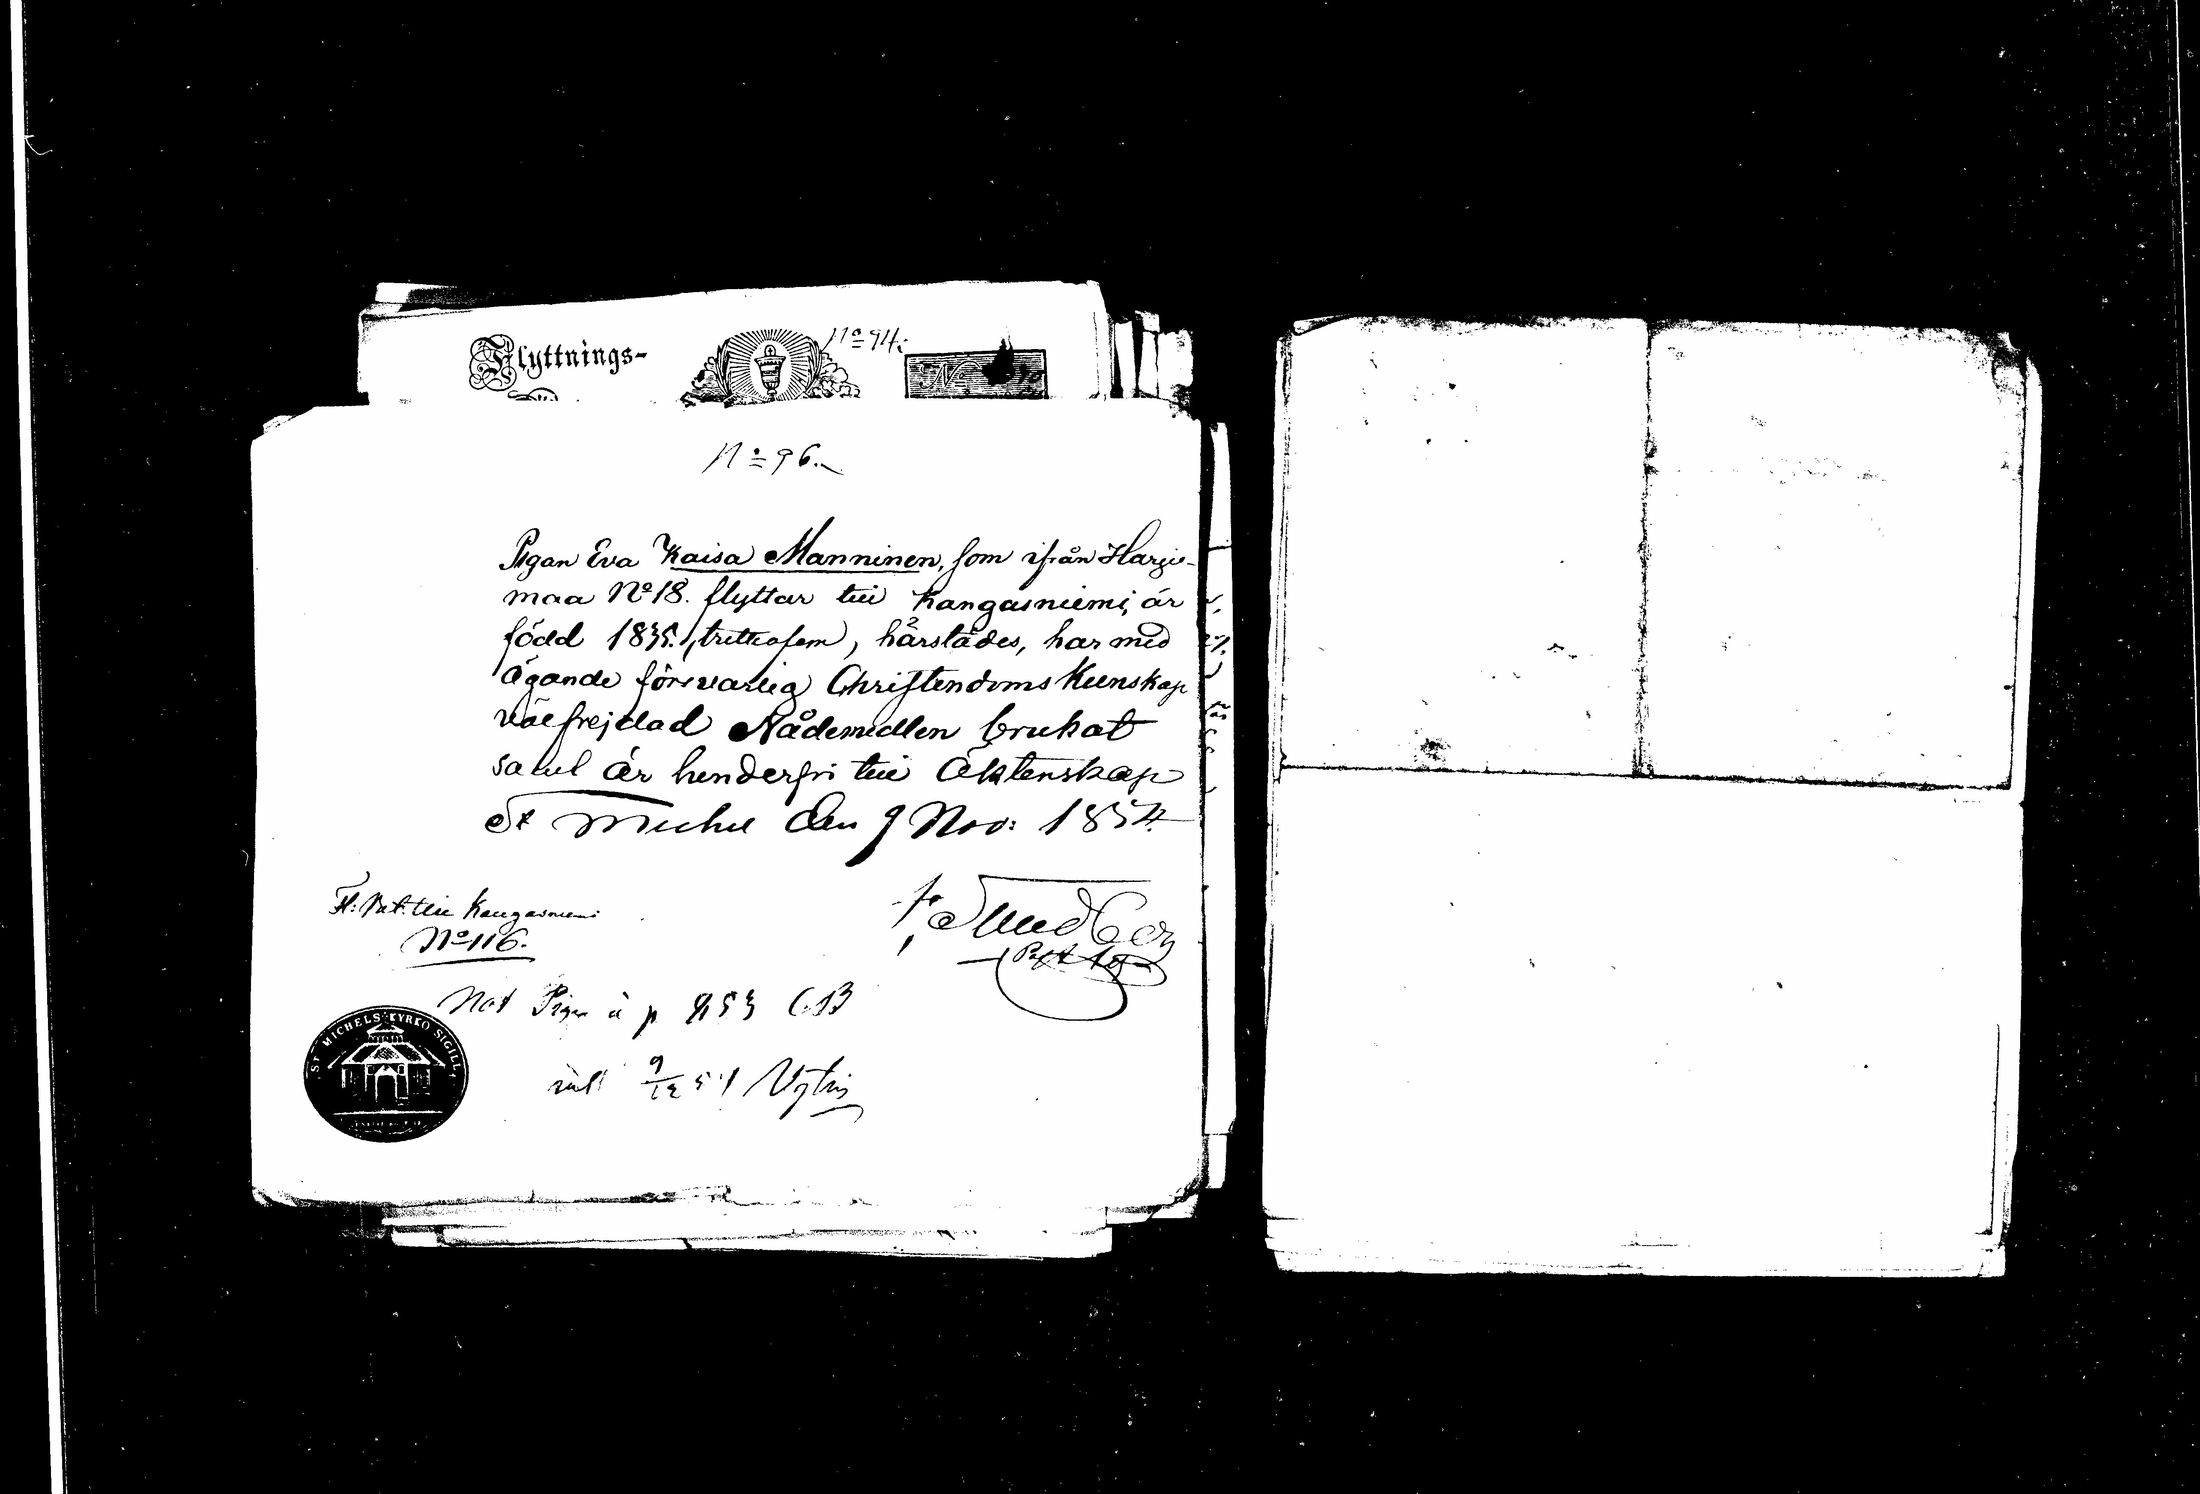 Flyttnings-
No 94.
No 96.
Pigan Eva Kaisa Manninen, som ifrån Harju-
maa No 18. flyttar till Kangasniemi, är
född 1835. trettiofem, härstädes, har med
ägande försvarlig Christendoms Kunskap
välfrejdad Nådemedlen brukat
samt är hinderfri till Äktenskap
St Michel den 9 Nov: 1854.
Fl: Bet: till Kangasniemi
No 116.
Not Pigan å p 853 CB
ut 9/12 54
ST MICHELS KYRKO SIGILL